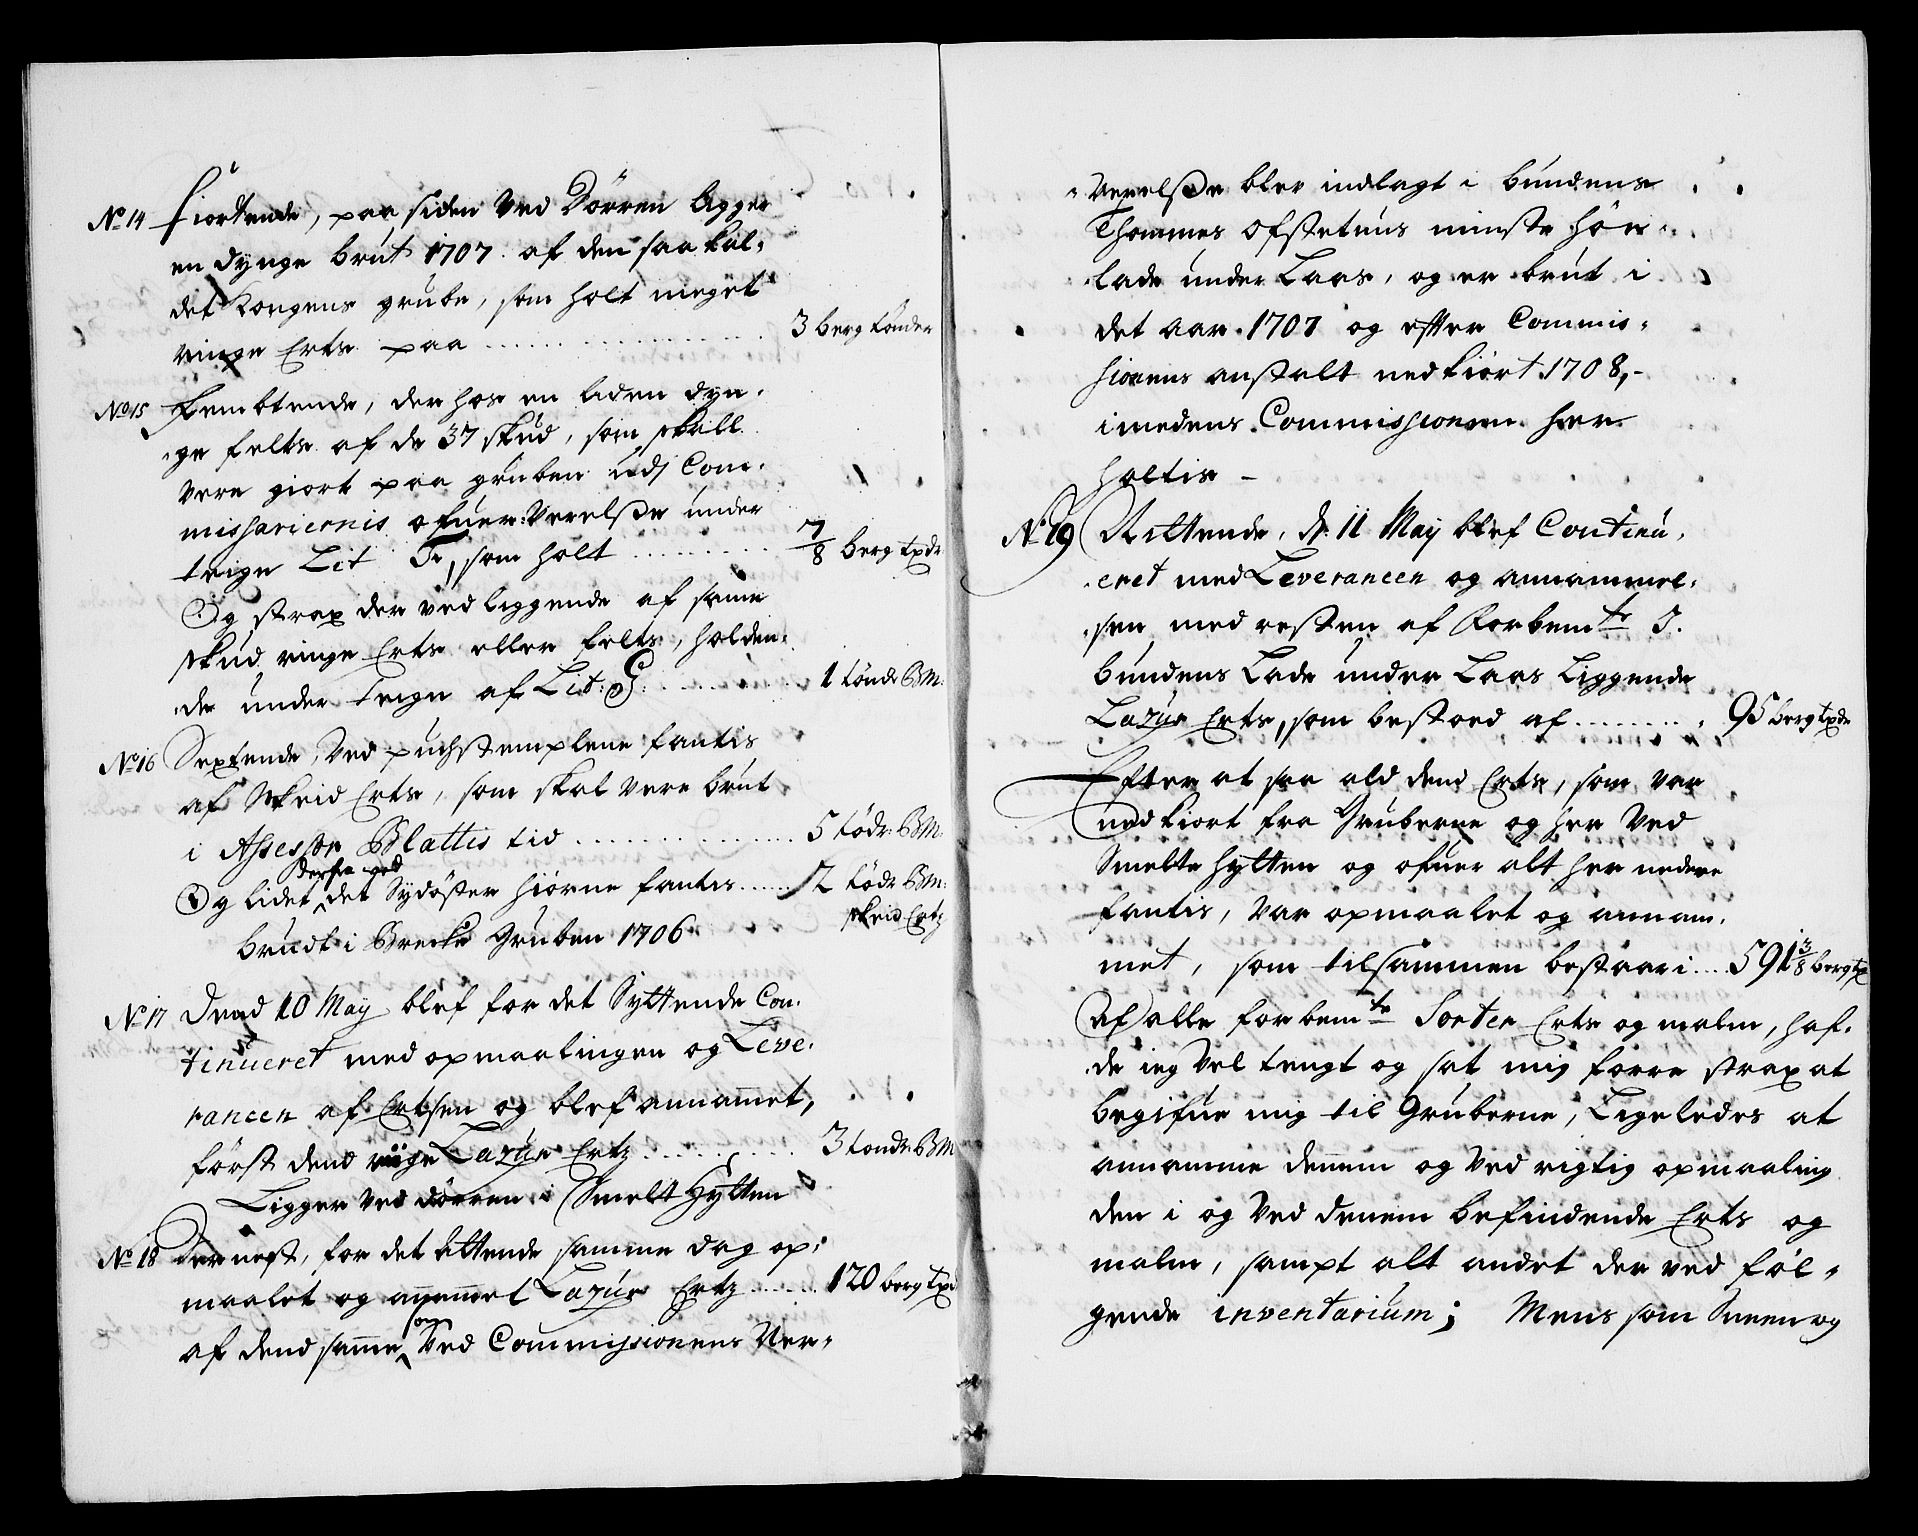 No 14 fiortende, paa siden Ved Dörren ligger
en dynge brut 1707. af den saa kal-
det Kongens grube, som holt meget
ringe Erts paa ........ 3 berg tönder
No 15 fembtende, der hos en liden dyn-
ge felts af de 37 skud, som skall
vere giort paa gruben udj Com-
missariernis ofuer-Verelsse under
teign Lit F, som holt ........ 7/8 berg tpdr
Og strax der ved liggende af same
skud ringe Erts eller felts, holden-
de under teign af Lit: G: ........ 1 tönde BM:
No 16 Sextende, Ved puchstemplene fantis
af Skeid Erts, som skal vere brut
i Assessor Blattis tid ........ 5 tödr: BM:
Og lidet derfra ved det Sydöster hiörne fantis ...... 12 tödr BM:
skeid Ertz
brudt i Brecke Gruben 1706
No 17 Dend 10 May blef for det Syttende Con-
tinueret med opmaalingen og Leve-
rancen af Ertsen og blef annammet,
först dend riige Lazur Ertz ........ 3 tondr: BM
Ligger ved dörren i Smelt Hytten
No 18 Dernest, for det Attende samme dag op-
maalet og anammet Lazur Ertz ...... 120 berg tpd
af dend samme som Ved Commissionens Ver-
Verelsse blev indlagt i bundens
Thommes Ofstetuns minste höe
lade under Laas, og er brut i
det aar 1707 og efter Commis-
sionens anstalt nedkiört 1708,-
imedens Commissionen her
holtis -
No 19 Nittende, d: 11 May blef Continu-
eret med Leverancen og annammel-
sen med resten af forbemte T.
bundens Lade under Laas Liggende
Lazur Erts, som bestoed af ........ 95 berg tpdr
Efter at saa ald dend Erts, som var
nedkiort fra Gruberne og her Ved
Smelte hytten og ofuer alt her nedere
fantis, var opmaalet og annam-
met, som tilsammen bestaar i .... 591 3/8 berg tp
Af alle forbemte Sorter Erts og malm, haf-
de ieg vel tengt og sat mig forre strax at
begifue mig til Gruberne, Ligeledes at
annamme denem og Ved rigtig opmaaling
den i og Ved denem befindende Erts og
malm, sampt alt andet der ved föl-
gende inventarium; Mens som Sneen og